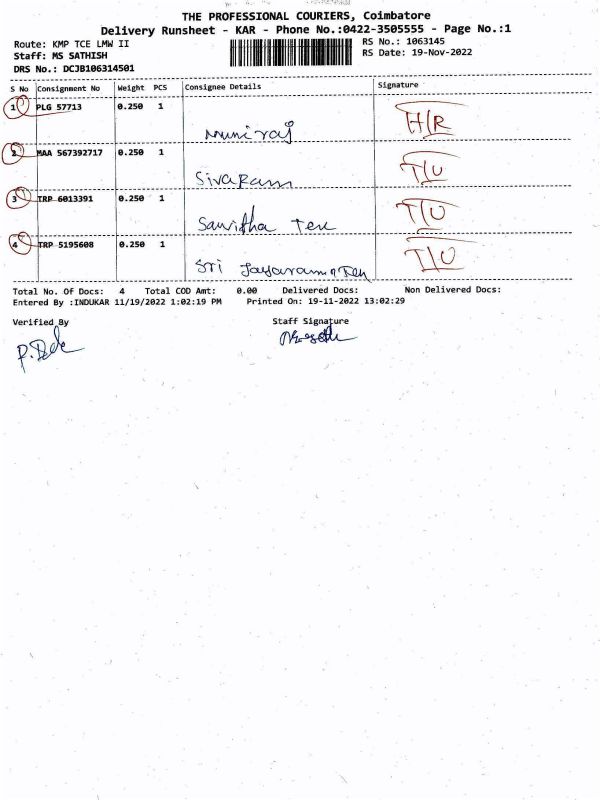 THE PROFESSIONAL COURIERS, Coimbatore
Delivery Runsheet - KAR - Phone No.:0422-3505555 - Page No.:1
Route: KMP TCE LMW II
Staff: MS SATHISH
DRS No.: DCJB106314501
RS No.: 1063145
RS Date: 19-Nov-2022
S No Consignment No Weight PCS Consignee Details Signature
1 PLG 57713 0.250 1
Muniraj H/R
2 MAA 567392717 0.250 1
Sivaram T/U
3 TRP 6013391 0.250 1
Sawitha Tex T/U
4 TRP 5195608 0.250 1
Sri Jayaraman Tex T/U
Total No. Of Docs: 4 Total COD Amt: 0.00 Delivered Docs: Non Delivered Docs:
Entered By :INDUKAR 11/19/2022 1:02:19 PM Printed On: 19-11-2022 13:02:29
Verified By Staff Signature